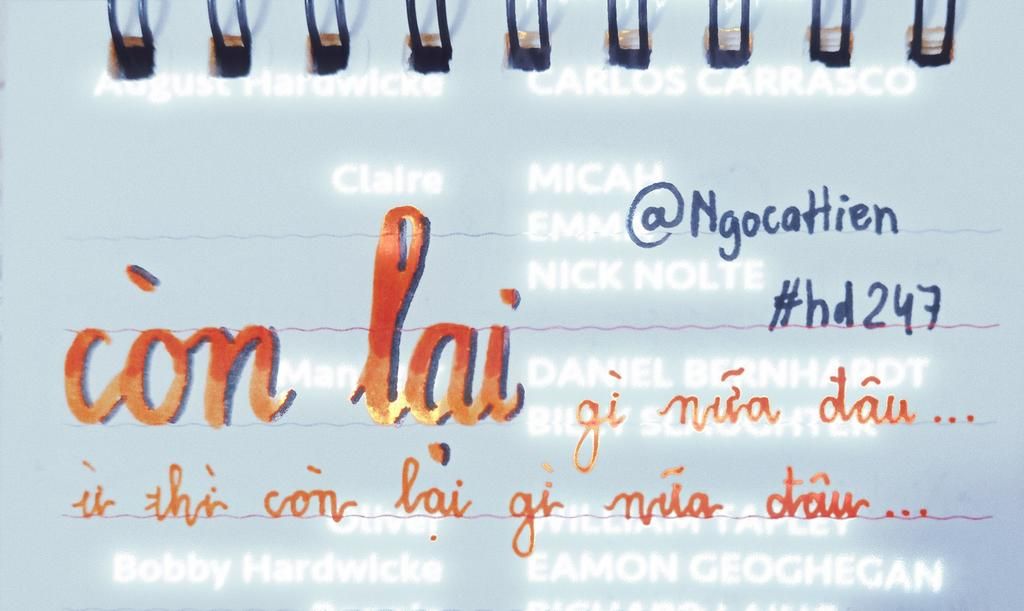 August Hardwicke CARLOS CARRASCO
Claire MICAH
@NgocaHien
NICK NOLTE
#hd247
còn lại
DANIEL BERNHARDT
gì nữa đâu...
BILLY SLAUGHTER
ừ thì còn lại gì nữa đâu...
Oliver WILLIAM TAPLEY
Bobby Hardwicke EAMON GEOGHEGAN